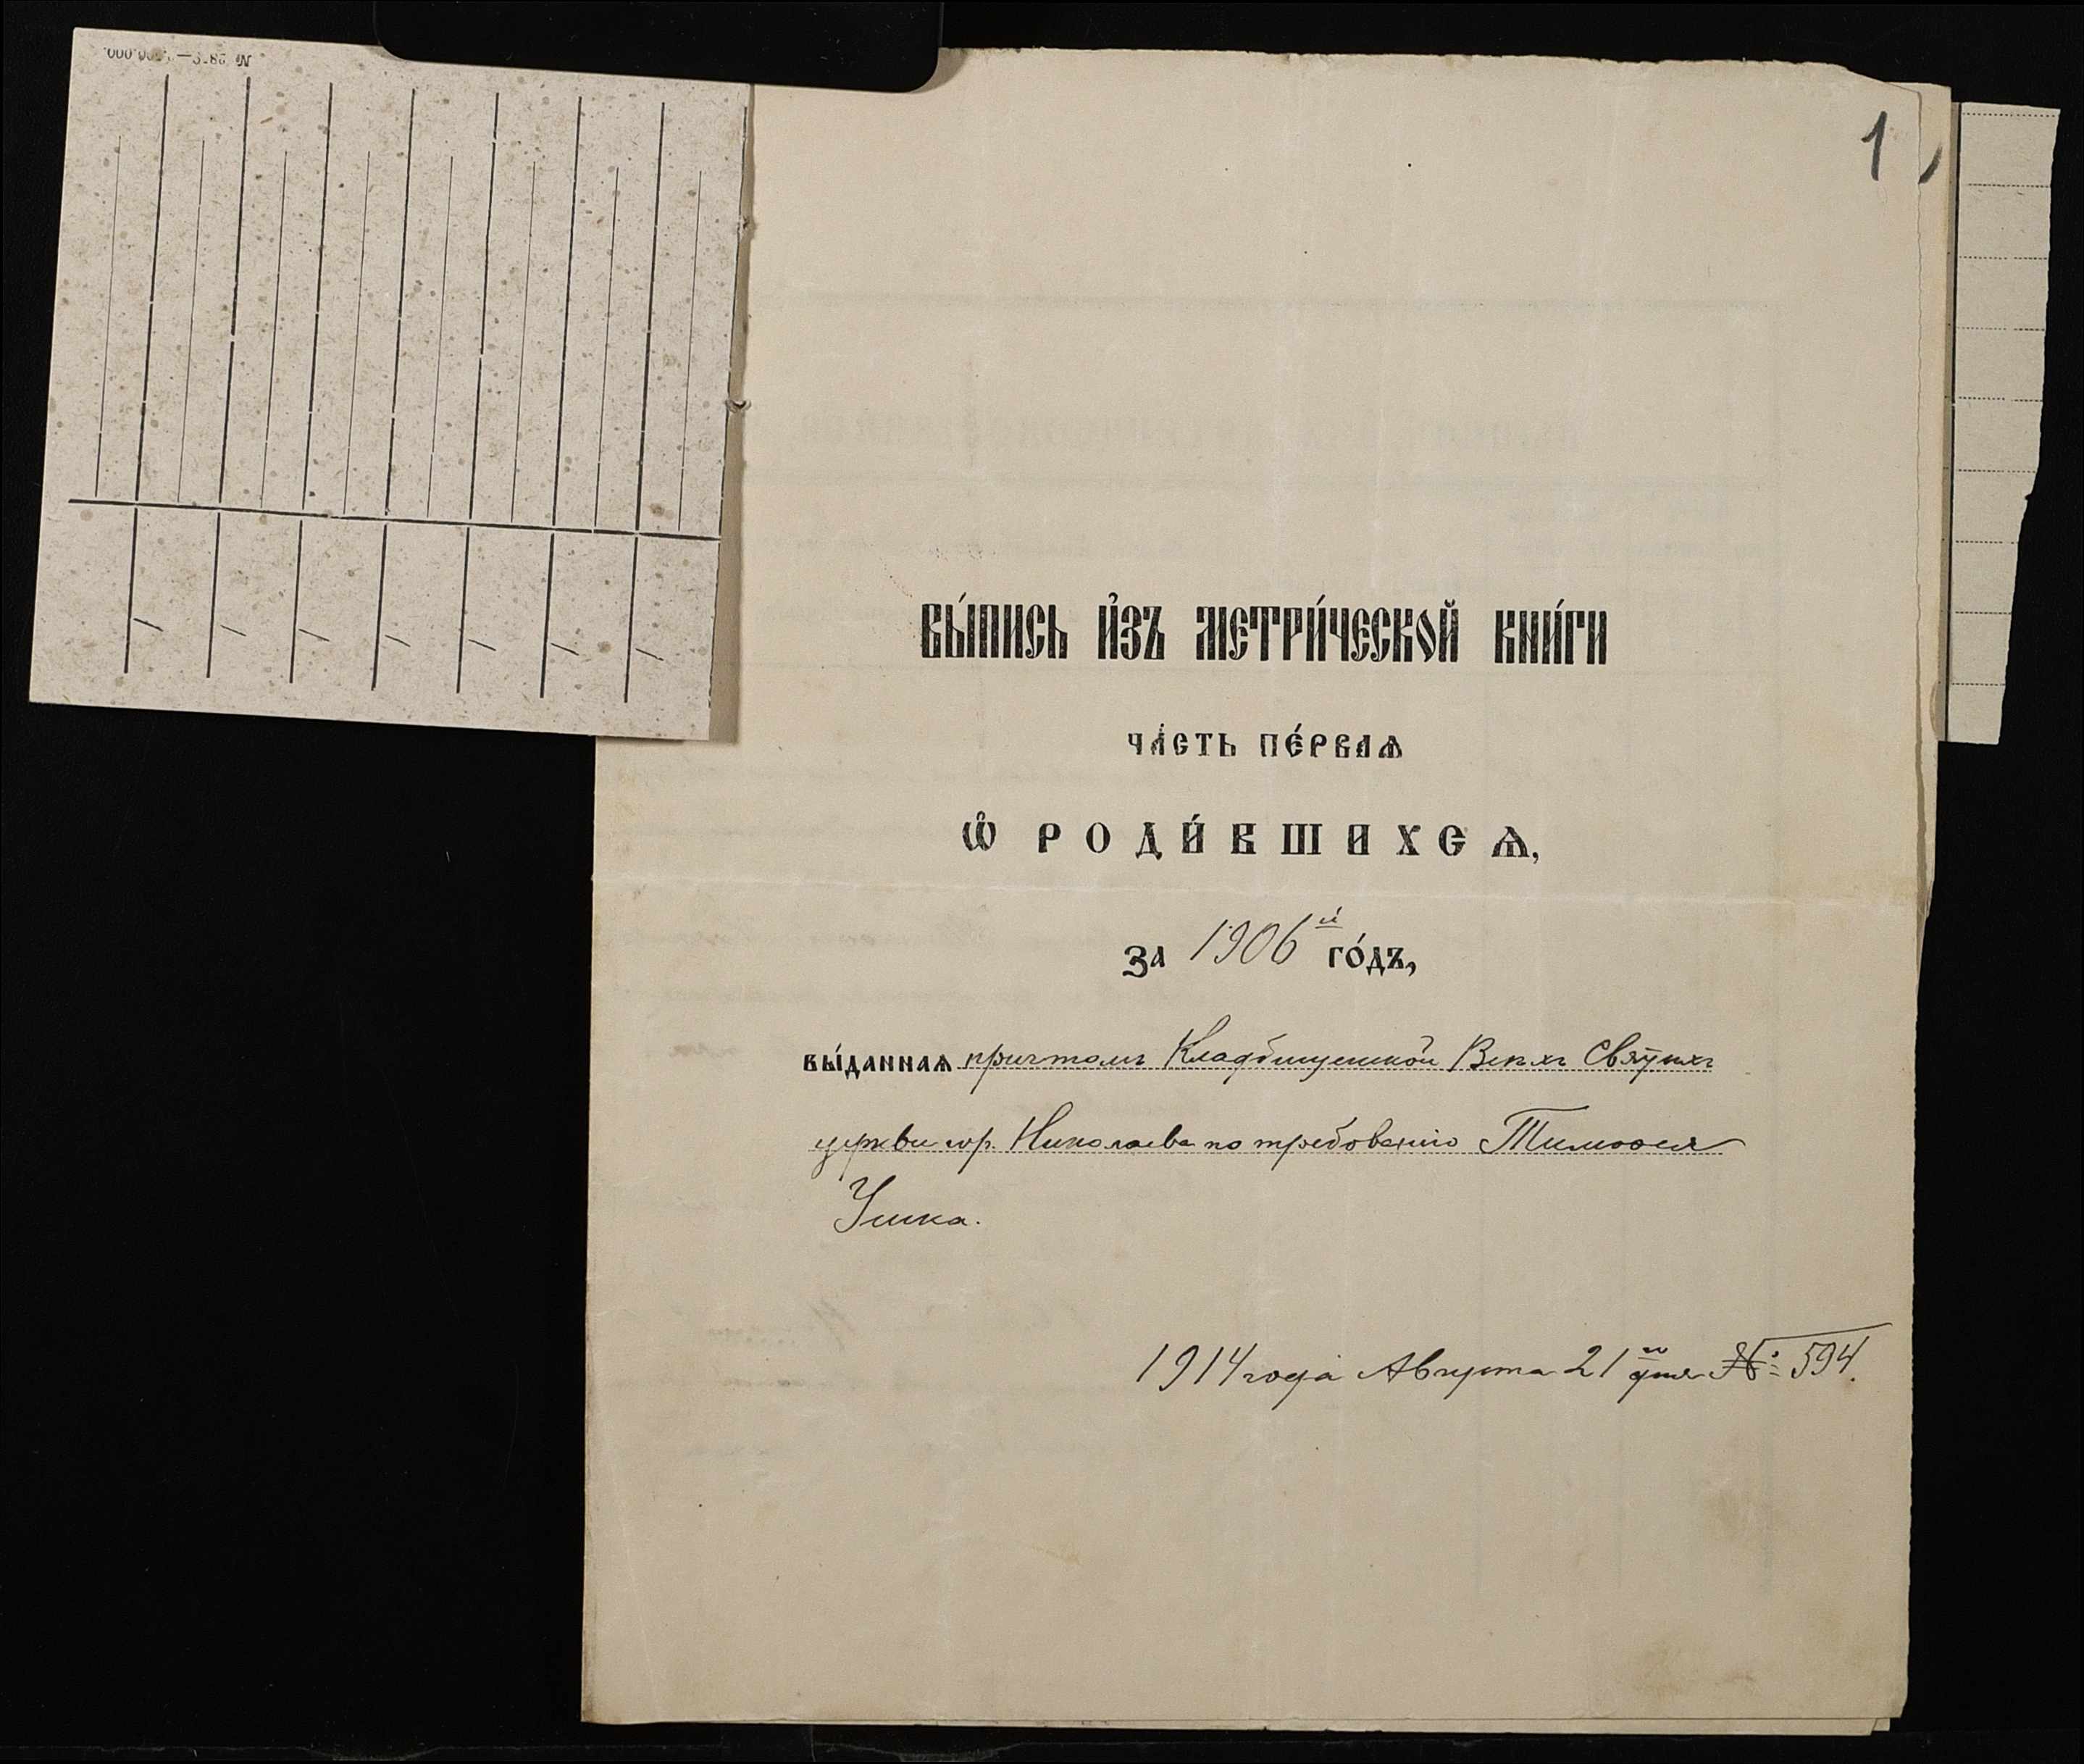 1
Вы́пись и҆зъ метри́ческой кни́ги
ча́сть пе́рваѧ
ѽ роди́вшихсѧ,
за 1906й го́дъ,
вы́даннаѧ причтомъ Кладбищенской Всѣхъ Святыхъ
церкви гор. Николаева по требованію Тимоѳея
Ушка.
1914 года Августа 21 дня № 594.